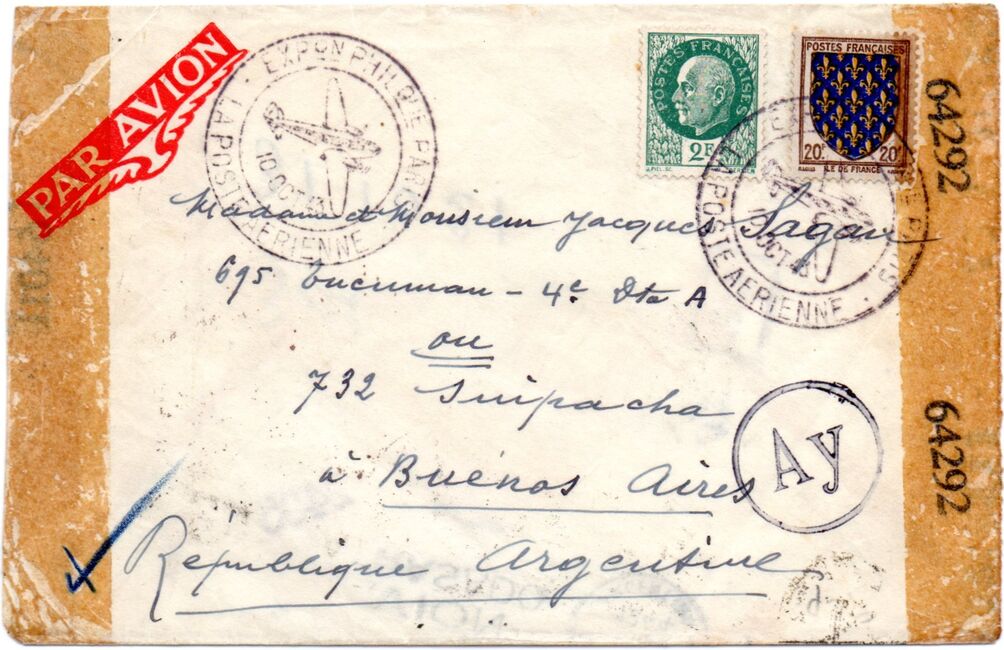 PAR AVION
EXPON PHILQUE PARIS
LA POSTE AERIENNE
10 OCT 43
POSTES FRANÇAISES
2F
POSTES FRANÇAISES
20F 20F
ILE DE FRANCE
LA POSTE AERIENNE
OCT 43
64292
Madame et Monsieur Jacques Sagan
695 Tucuman - 4e Dto A
ou
732 Suipacha
à Buénos Aires
Republique Argentine
Ay
64292